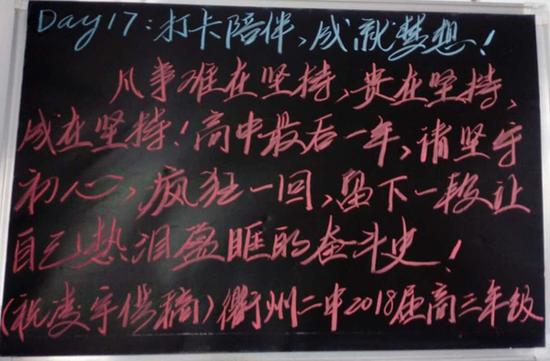 Day17:打卡陪伴,成就梦想!
凡事难在坚持,贵在坚持,
成在坚持!高中最后一年,请坚守
初心,疯狂一回,留下一段让
自己热泪盈眶的奋斗史!
(祝凌宇供稿)衢州二中2018届高三年级